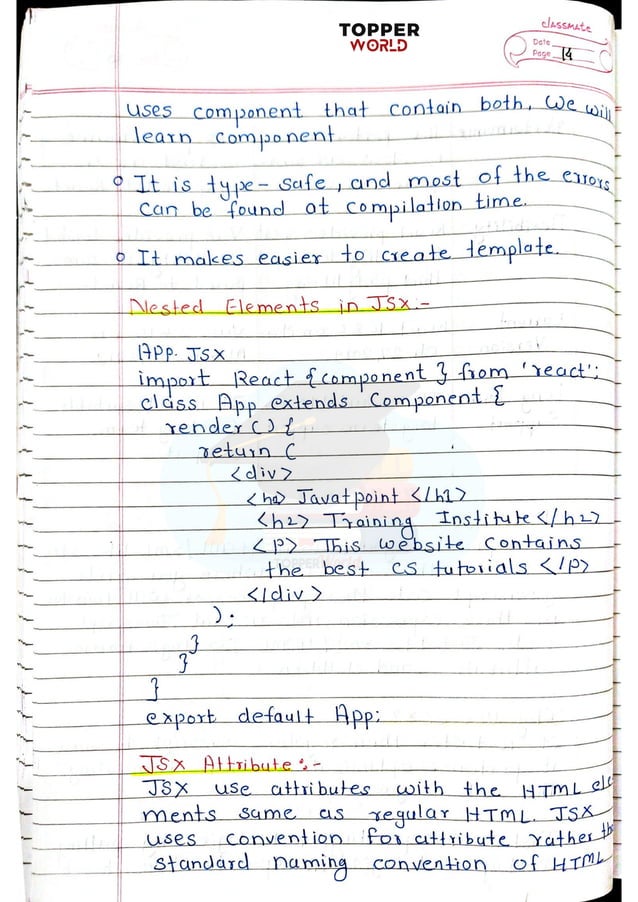 TOPPER
WORLD
classmate
Date
Page 14
uses component that contain both. We will
learn component
o It is type-safe, and most of the errors
can be found at compilation time.
o It makes easier to create template.
Nested Elements in JSX:-
APP. JSX
import React {component } from 'react';
class App extends Component {
render () {
return (
<div>
<h1> Javatpoint </h1>
<h2> Training Institute </h2>
<p> This website contains
the best cs tutorials </p>
</div>
);
}
}
}
export default App;
JSX Attribute:-
JSX use attributes with the HTML ele
ments same as regular HTML. JSX
uses convention for attribute rather th
standard naming convention of HTML